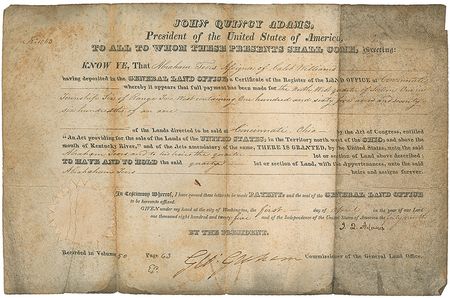 JOHN QUINCY ADAMS,
President of the United States of America,
TO ALL TO WHOM THESE PRESENTS SHALL COME, Greeting:
KNOW YE, That Abraham Teris Assignee of Caleb Williams
having deposited in the GENERAL LAND OFFICE, a Certificate of the Register of the LAND OFFICE at Cincinnati
whereby it appears that full payment has been made for the North West quarter of Section
Township of Range West containing One hundred and sixty acres and
six hundredths of an acre
of the Lands directed to be sold at Cincinnati Ohio by the Act of Congress, entitled
"An Act providing for the sale of the Lands of the UNITED STATES, in the Territory north west of the Ohio, and above the
mouth of Kentucky River," and of the Acts amendatory of the same, THERE IS GRANTED, by the United States, unto the said
Abraham the quarter lot or section of Land above described:
TO HAVE AND TO HOLD the said quarter lot or section of Land, with the Appurtenances, unto the said
Abraham Teris heirs and assigns forever.
In Testimony Whereof, I have caused these letters to be made PATENT and the seal of the GENERAL LAND OFFICE
to be hereunto affixed.
GIVEN under my hand at the city of Washington, the first day of April in the year of our Lord
one thousand eight hundred and twenty and of the Independence of the United States of America the
BY THE PRESIDENT, J. Q. Adams
Commissioner of the General Land Office.
Recorded in Volume 50 Page 63